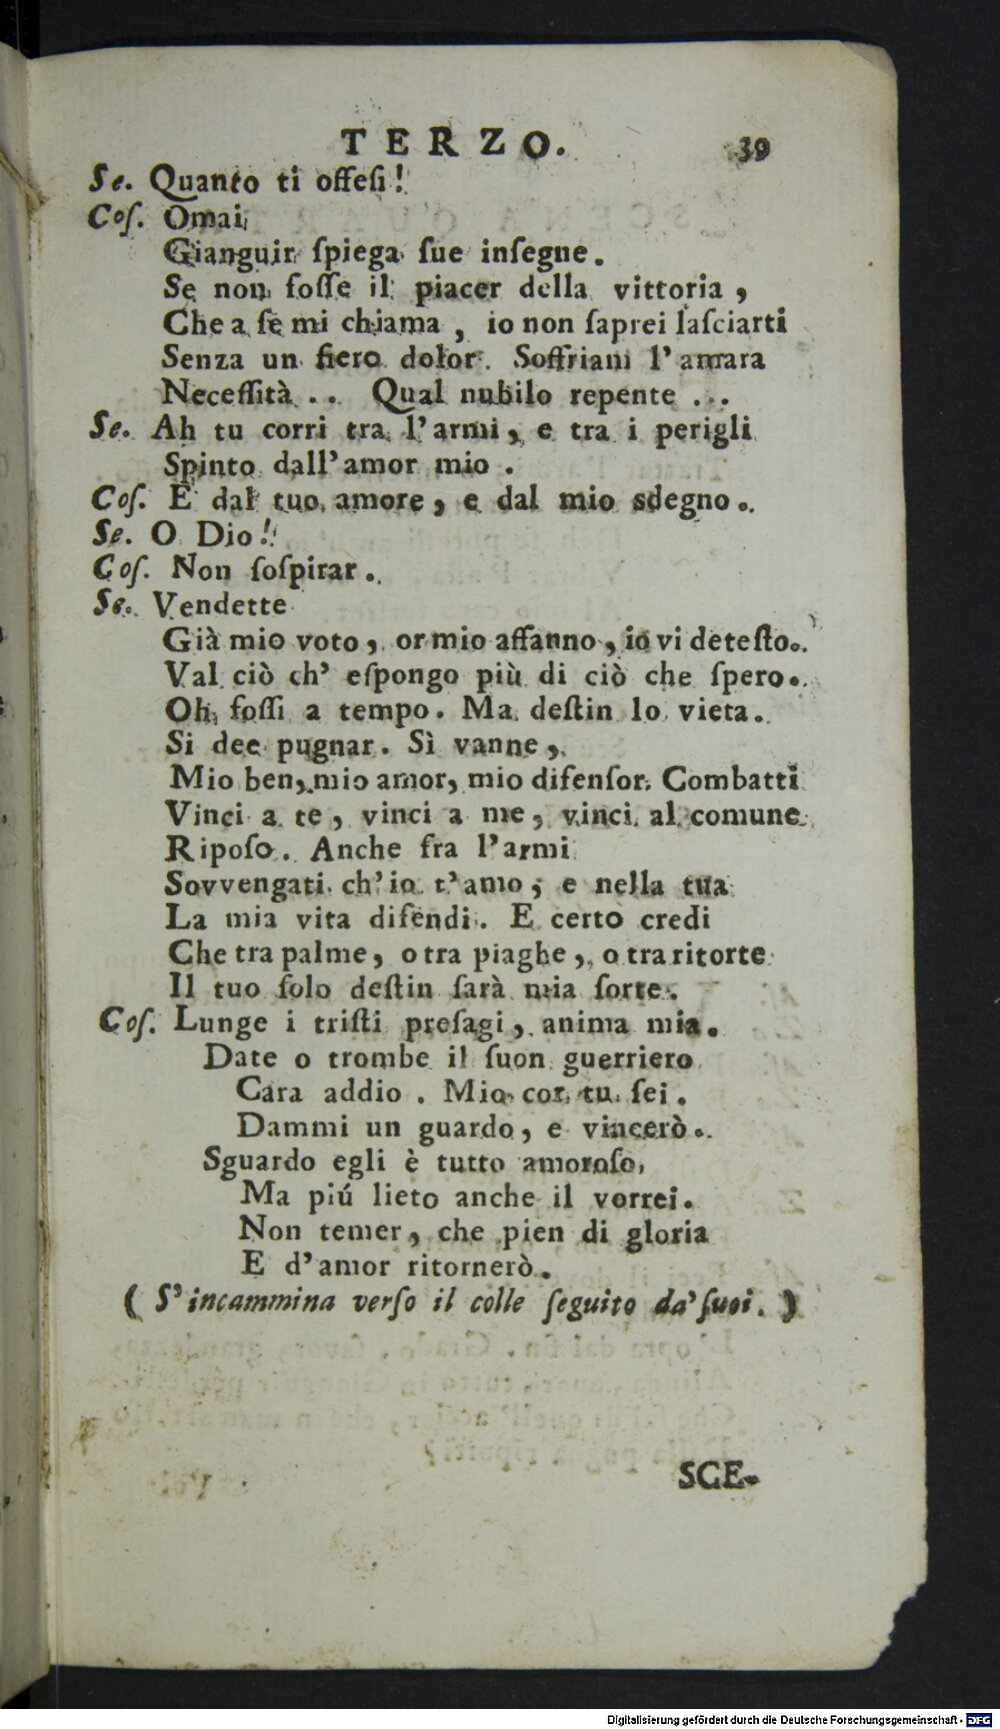 TERZO. 39
Se. Quanto ti offeſi!
Coſ. Omai
Gianguir ſpiega ſue inſegne.
Se non foſſe il piacer della vittoria,
Che a ſe mi chiama, io non ſaprei laſciarti
Senza un fiero dolor. Soffriam l'amara
Neceſſità .. Qual nubilo repente ...
Se. Ah tu corri tra l'armi, e tra i perigli
Spinto dall'amor mio.
Coſ. E dal tuo amore, e dal mio sdegno.
Se. O Dio!
Coſ. Non ſoſpirar.
Se. Vendette
Già mio voto, or mio affanno, io vi deteſto.
Val ciò ch' eſpongo più di ciò che ſpero.
Oh foſſi a tempo. Ma deſtin lo vieta.
Si dee pugnar. Sì vanne,
Mio ben, mio amor, mio difenſor. Combatti
Vinci a te, vinci a me, vinci al comune
Ripoſo. Anche fra l'armi
Sovvengati ch'io t'amo, e nella tua
La mia vita difendi. E certo credi
Che tra palme, o tra piaghe, o tra ritorte
Il tuo ſolo deſtin ſarà mia ſorte.
Coſ. Lunge i triſti preſagi, anima mia.
Date o trombe il ſuon guerriero
Cara addio. Mio cor tu ſei.
Dammi un guardo, e vincerò.
Sguardo egli è tutto amoroſo,
Ma piú lieto anche il vorrei.
Non temer, che pien di gloria
E d'amor ritornerò.
(S'incammina verſo il colle ſeguito da' ſuoi.)
SCE-
Digitalisierung gefördert durch die Deutsche Forschungsgemeinschaft - DFG